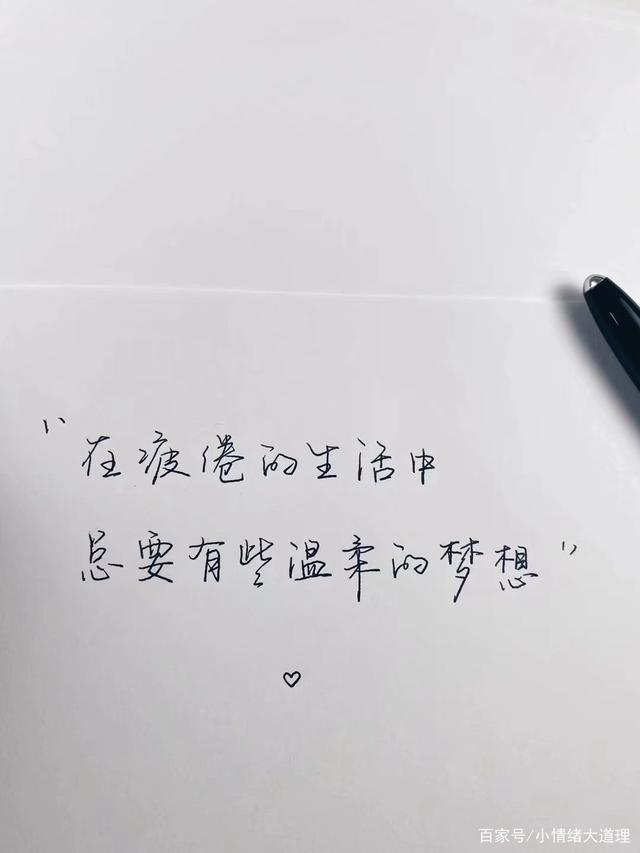 "在疲倦的生活中
总要有些温柔的梦想"
百家号/小情绪大道理